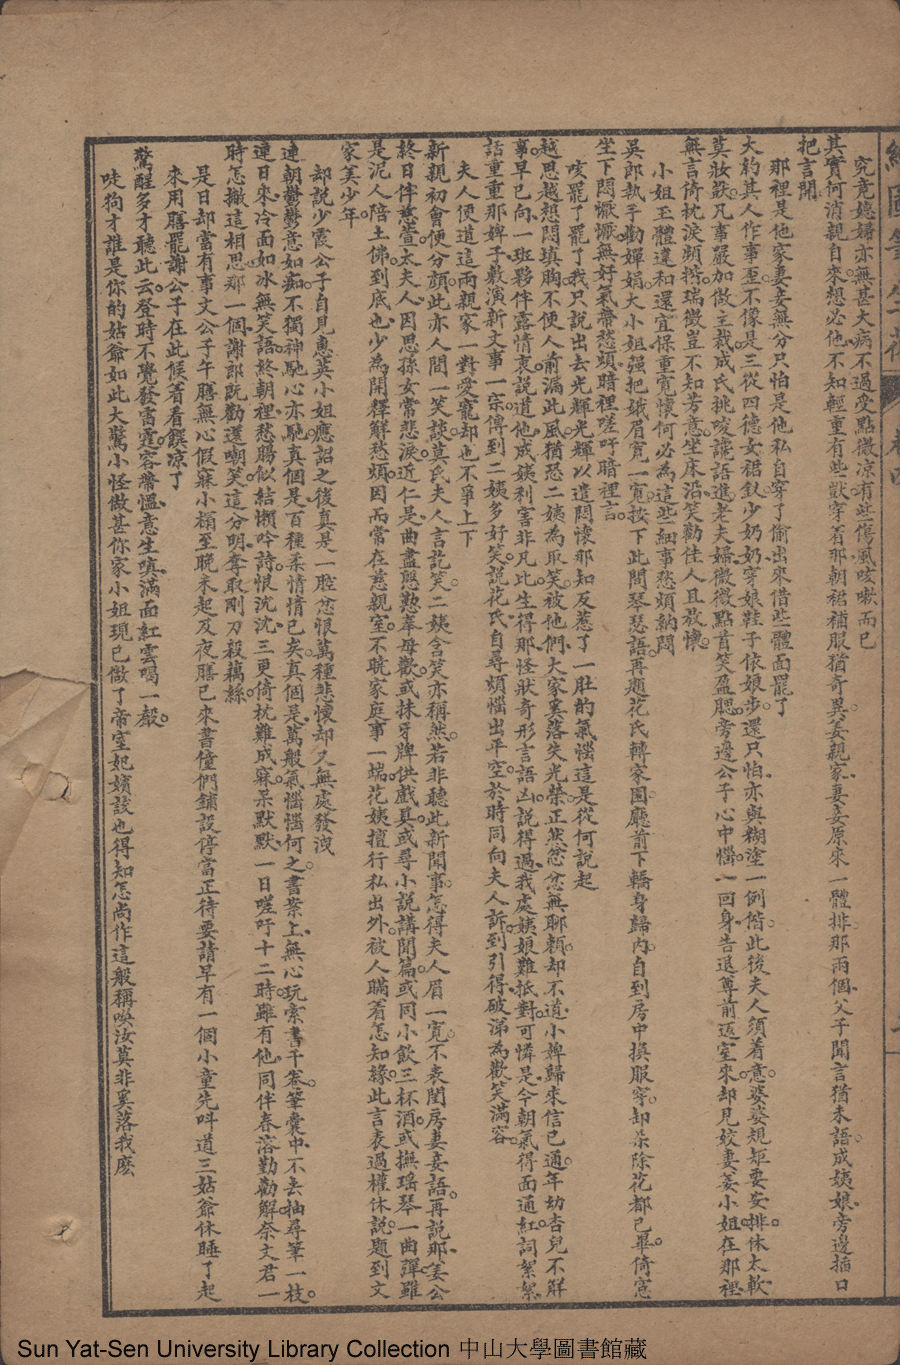 究竟媳婦亦無甚大病不過受點微凉有些傷風咳嗽而已
其實何消親自來想必他不知輕重有些獃穿着那朝裙補服猶奇異姜親家妻妾原來一體排那兩個父子聞言猶未語成姨娘旁邊插口
把言開
那裡是他家妻妾無分只怕是他私自穿了偷出來借些體面罷了
大約其人作事歪不像是三從四德女裙釵少奶奶穿娘鞋子依娘步還只怕亦與糊塗一例偕此後夫人須着意婆婆規矩要安排休太軟
莫妝獃凡事嚴加做主裁成氏挑唆讒語進老夫婦微微點首笑盈腮旁邊公子心中惱一回身告退尊前返室來却見姣妻姜小姐在那裡
無言倚枕淚頻揩瑞徵豈不知芳意坐床沿笑勸佳人且放懷
小姐玉體違和還宜保重寬懷何必為這些細事愁煩納悶
吳郎執手勸嬋娟大小姐強把蛾眉寬一寬按下此間琴瑟語再題花氏轉家園廳前下轎身歸內自到房中換服穿却柔除花都已畢倚窓
坐下悶懨懨無好氣帶愁煩暗裡嗟吁暗裡言
咳罷了罷了我只說出去光輝光輝以遣悶懷那知反惹了一肚的氣惱這是從何說起
越思越想悶填胸不便人前漏此風猶恐二姨為取笑被他們大家奚落失光榮正然忿忿無聊賴却不道小婢歸來信已通年幼杏兒不解
事早已向一班夥伴露情衷說道他成姨利害非凡比生得那怪狀奇形言語凶說得過我處姨娘難抵對可憐是今朝氣得面通紅詞絮絮
話重重那婢子敷演新文事一宗傳到二姨多好笑說花氏自尋煩惱出平空於時同向夫人訴到引得破涕為歡笑滿容
夫人便道這兩親家一對愛寵却也不爭上下
新親初會便分顏此亦人間一笑談莫氏夫人言訖笑二姨含笑亦稱然若非聽此新聞事怎得夫人眉一寬不表閨房妻妾語再說那姜公
終日伴慈萱太夫人因思孫女常悲淚近仁是曲盡慇懃葦母歡或抹牙牌供戲具或尋小說講閒篇或同小飲三杯酒或撫瑤琴一曲彈雖
是泥人陪土佛到底也少為開釋解愁煩因而常在慈親室不曉家庭事一端花姨擅行私出外被人瞞着怎知緣此言表過權休說題到文
家美少年
却說少霞公子自見惠英小姐應詔之後真是一腔忿恨萬種悲懷却又無處發洩
連朝鬱鬱意如痴不獨神馳心亦馳真個是百種柔情情已矣真個是萬般氣惱惱何之書案上無心玩索書千卷筆囊中不去抽尋筆一枝
連日來冷面如冰無笑語終朝裡愁腸似結懶吟詩恨沈沈三更倚枕難成寐呆默默一日嗟吁十二時雖有他同伴春溶勤勸解奈文君一
時怎撇這相思那一個謝郎既勸還嘲笑這分明奪取剛刀殺藕絲
是日却當有事文公子午膳無心假寐小榻至晚未起及夜膳已來書僮們鋪設停當正待要請早有一個小童先呌道三姑爺休睡了起
來用膳罷謝公子在此候着看饌凉了
驚醒多才聽此云登時不覺發雷霆容帶慍意生嗔滿面紅雲喝一聲
哫狗才誰是你的姑爺如此大驚小怪做甚你家小姐現已做了帝室妃嬪該也得知怎尚作這般稱喚汝莫非奚落我麽
Sun Yat-Sen University Library Collection 中山大學圖書館藏